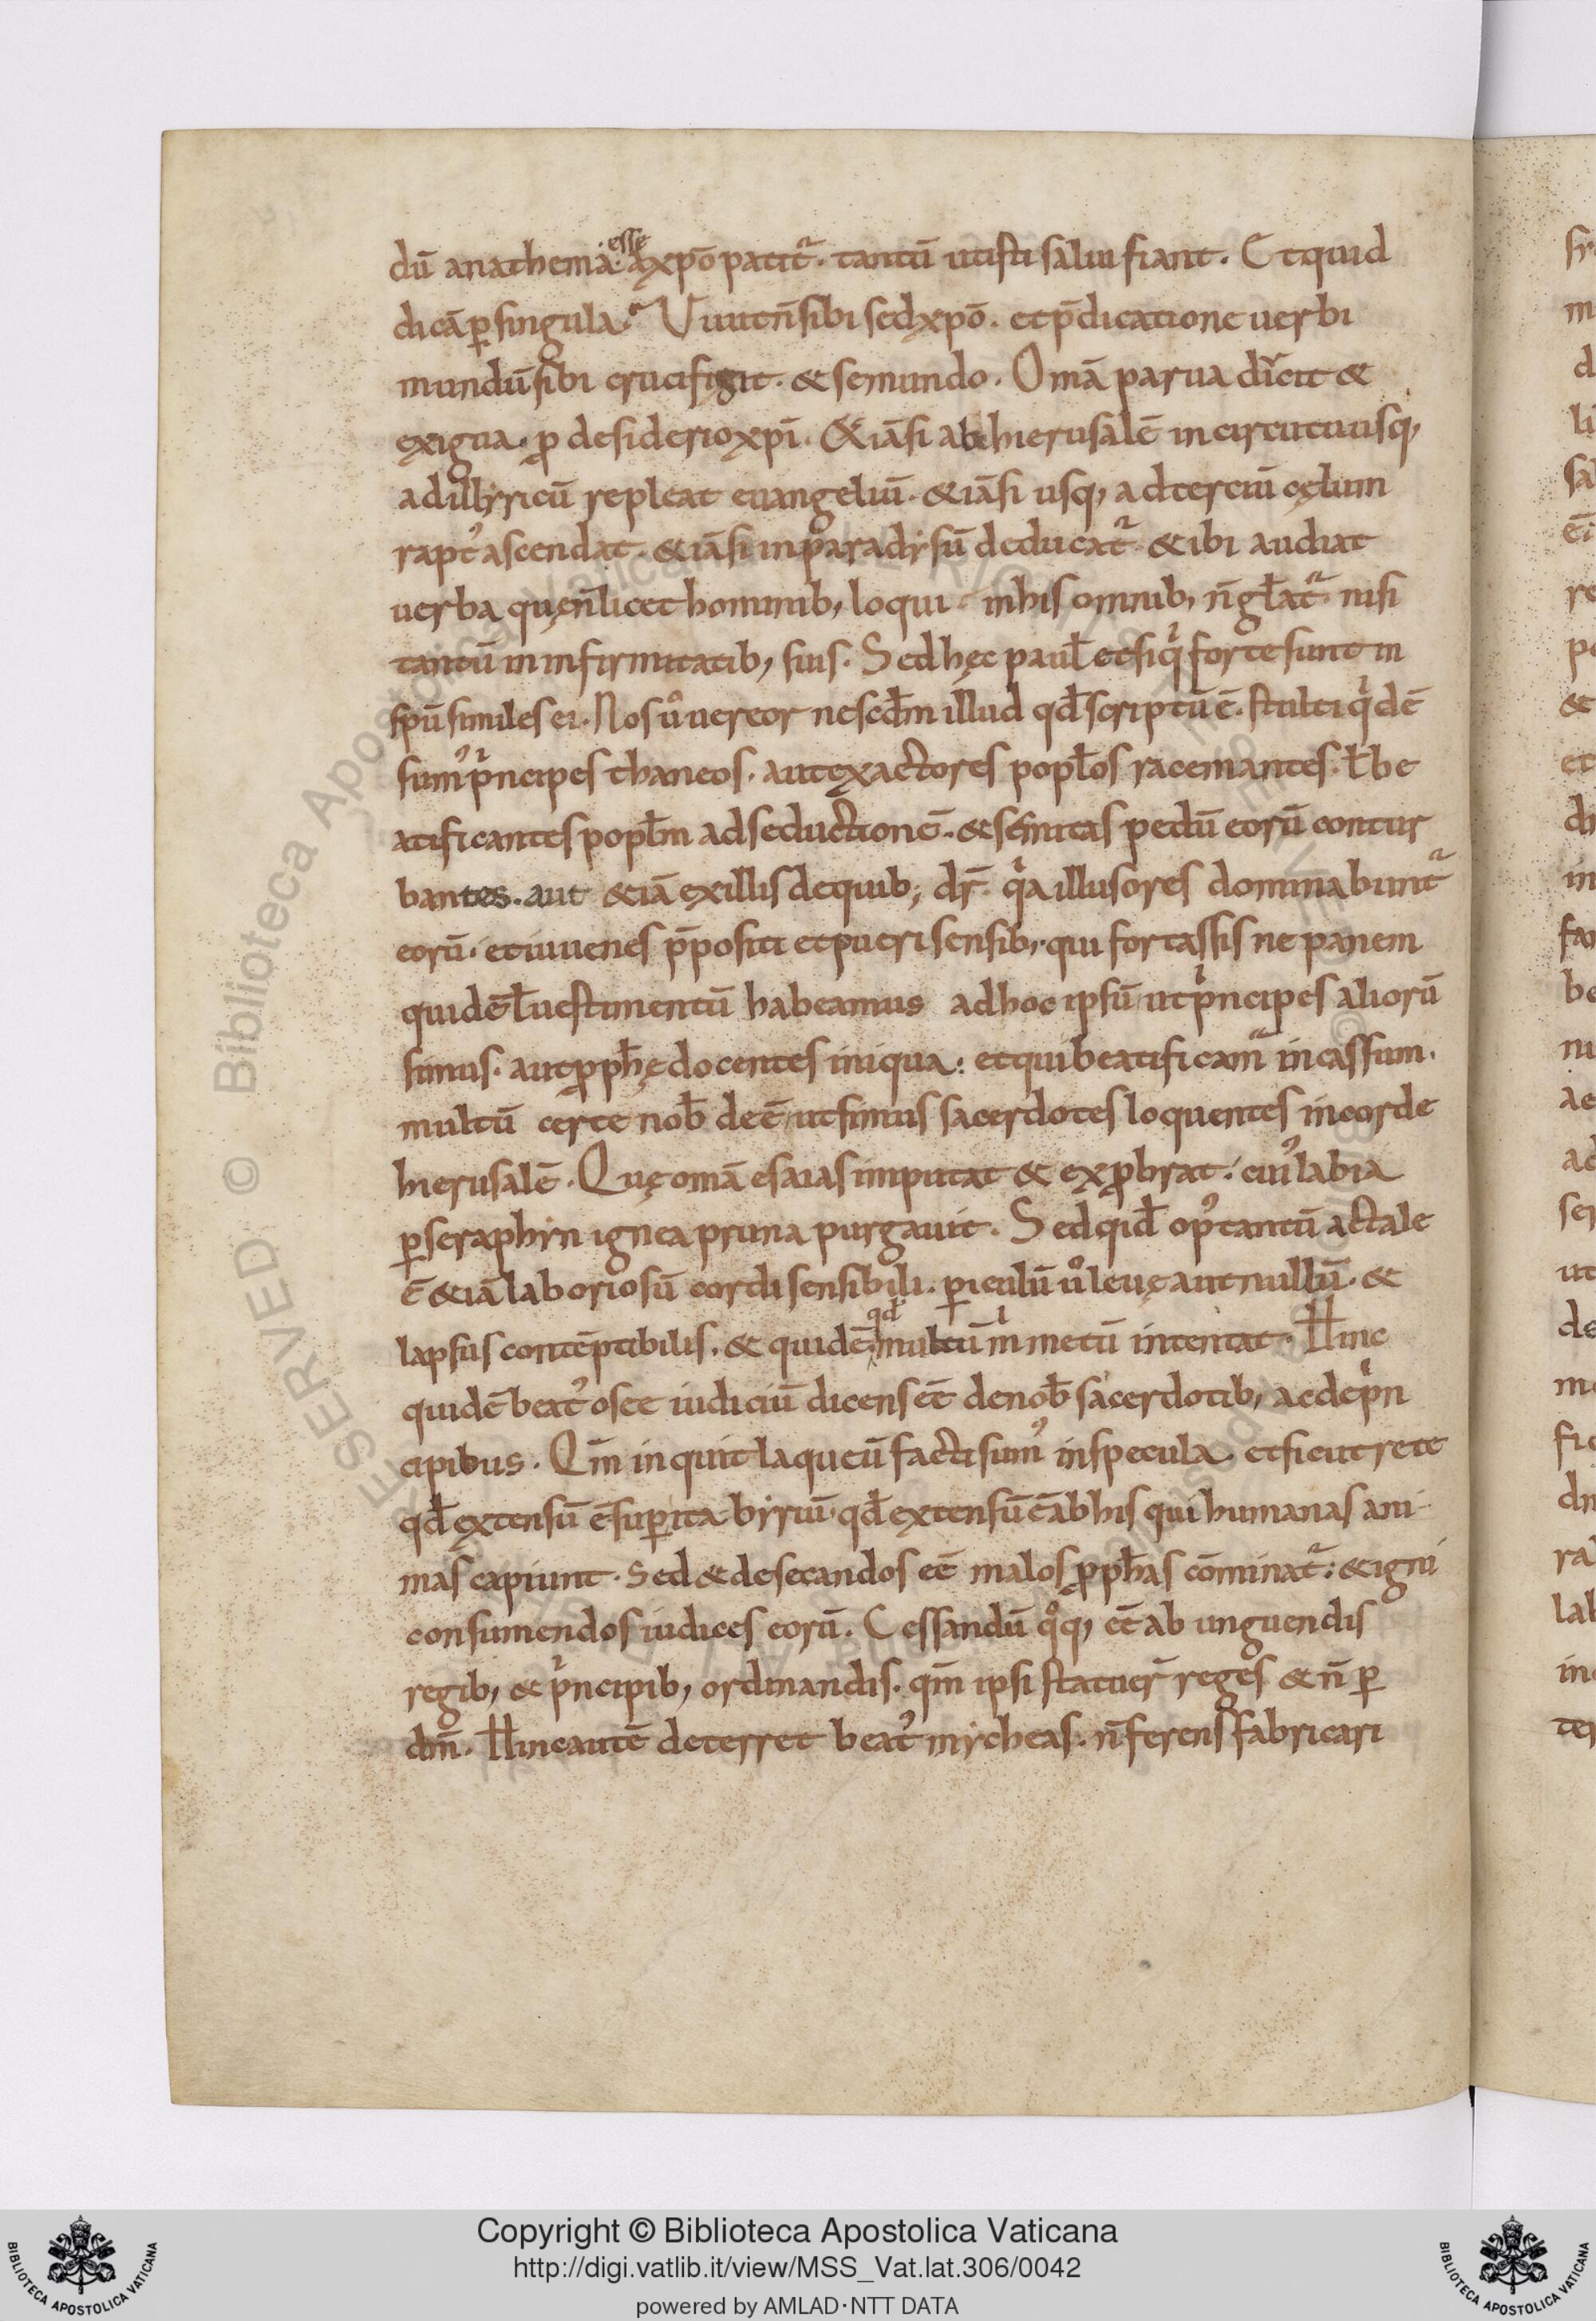 dū anathema esse axpō patit᷑. tantū ut isti salui fiant. Et quid
dicā ꝑ singula? Viuit n̄ sibi sed xpō. et p̄dicatione uerbi
mundū sibi crucifigit. & se mundo. Omā parua dicit &
exigua. ꝓ desiderio xpī. & iā si ab hierusalē in circuitu usq;
ad illyricū repleat euangeliū. & iā si usq; ad terciū cęlum
rapt᾽ ascendat. & iā si in paradysū deducat᷑ & ibi audiat
uerba quę n̄ licet hominib; loqui. in his omnib; n̄ gl̄at᷑ nisi
tantū in infirmitatib; suis. Sed hęc paul̄ et siq̇ forte sunt in
spū similes ei. Nos ů uereor ne scd̄m illud qd̄ scriptū ē. stulti q̇dē
sum᾽ ṗncipes thaneos. aut exactores popl̄os racemantes. ł be
atificantes popl̄m ad seductionē. & semitas pedū eorū contur
bantes. aut & iā ex illis de quib; dr̄. q̇a illusores dominabunt᷑
eorū. et iuuenes p̄positi et pueri sensib;. qui fortassis ne panem
quidē ł uestimentū habeamus ad hoc ipsū ut ṗncipes aliorū
simus. aut ꝓph̄ę docentes iniqua: et qui beatificam᷑ in cassum.
multū certe nob̄ deē ut simus sacerdotes loquentes in corde
hierusalē. Quę omā esaias imputat & exꝓbrat. cui᾽ labia
ꝑ seraphyn ignea pruna purgauit. Sed qid̄ op᾽ tantū ac tale
ē & iā laboriosū cordi sensibili. ꝑiculū ů leue aut nullū. &
lapsus contēptibilis. & quidē qd̄ multū m metū intentat. Hinc
quidē beat᾽ osee iudiciū dicens eē de nob̄ sacerdotib; ac de ṗn
cipibus. Qm̄ inquit laqueū facti sum᾽ in specula. et sicut rete
qd̄ extensū ē suꝑ itabyriū. qd̄ extensū ē ab his qui humanas ani
mas capiunt. Sed & desecandos eē malos ꝓph̄as cōminat᷑: & igni
consumendos iudices eorū. Cessandū q̊q; eē ab unguendis
regib; & ṗncipib; ordinandis. qm̄ ipsi statuer̄ reges & n̄ ꝑ
dm̄. Hinc autē deterret beat᾽ mycheas. n̄ ferens fabricari
Copyright © Biblioteca Apostolica Vaticana
http://digi.vatlib.it/view/MSS_Vat.lat.306/0042
powered by AMLAD·NTT DATA